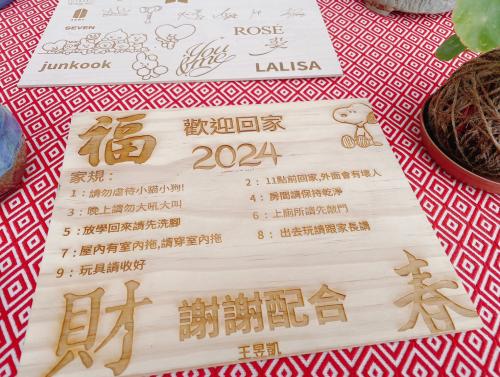 SEVEN
ROSÉ
You & me
junkook
LALISA
福
歡迎回家
2024
家規：
1：請勿虐待小貓小狗!
2：11點前回家,外面會有壞人
3：晚上請勿大吼大叫
4：房間請保持乾淨
5：放學回來請先洗腳
6：上廁所請先敲門
7：屋內有室內拖,請穿室內拖
8：出去玩請跟家長講
9：玩具請收好
財
謝謝配合
春
王昱凱